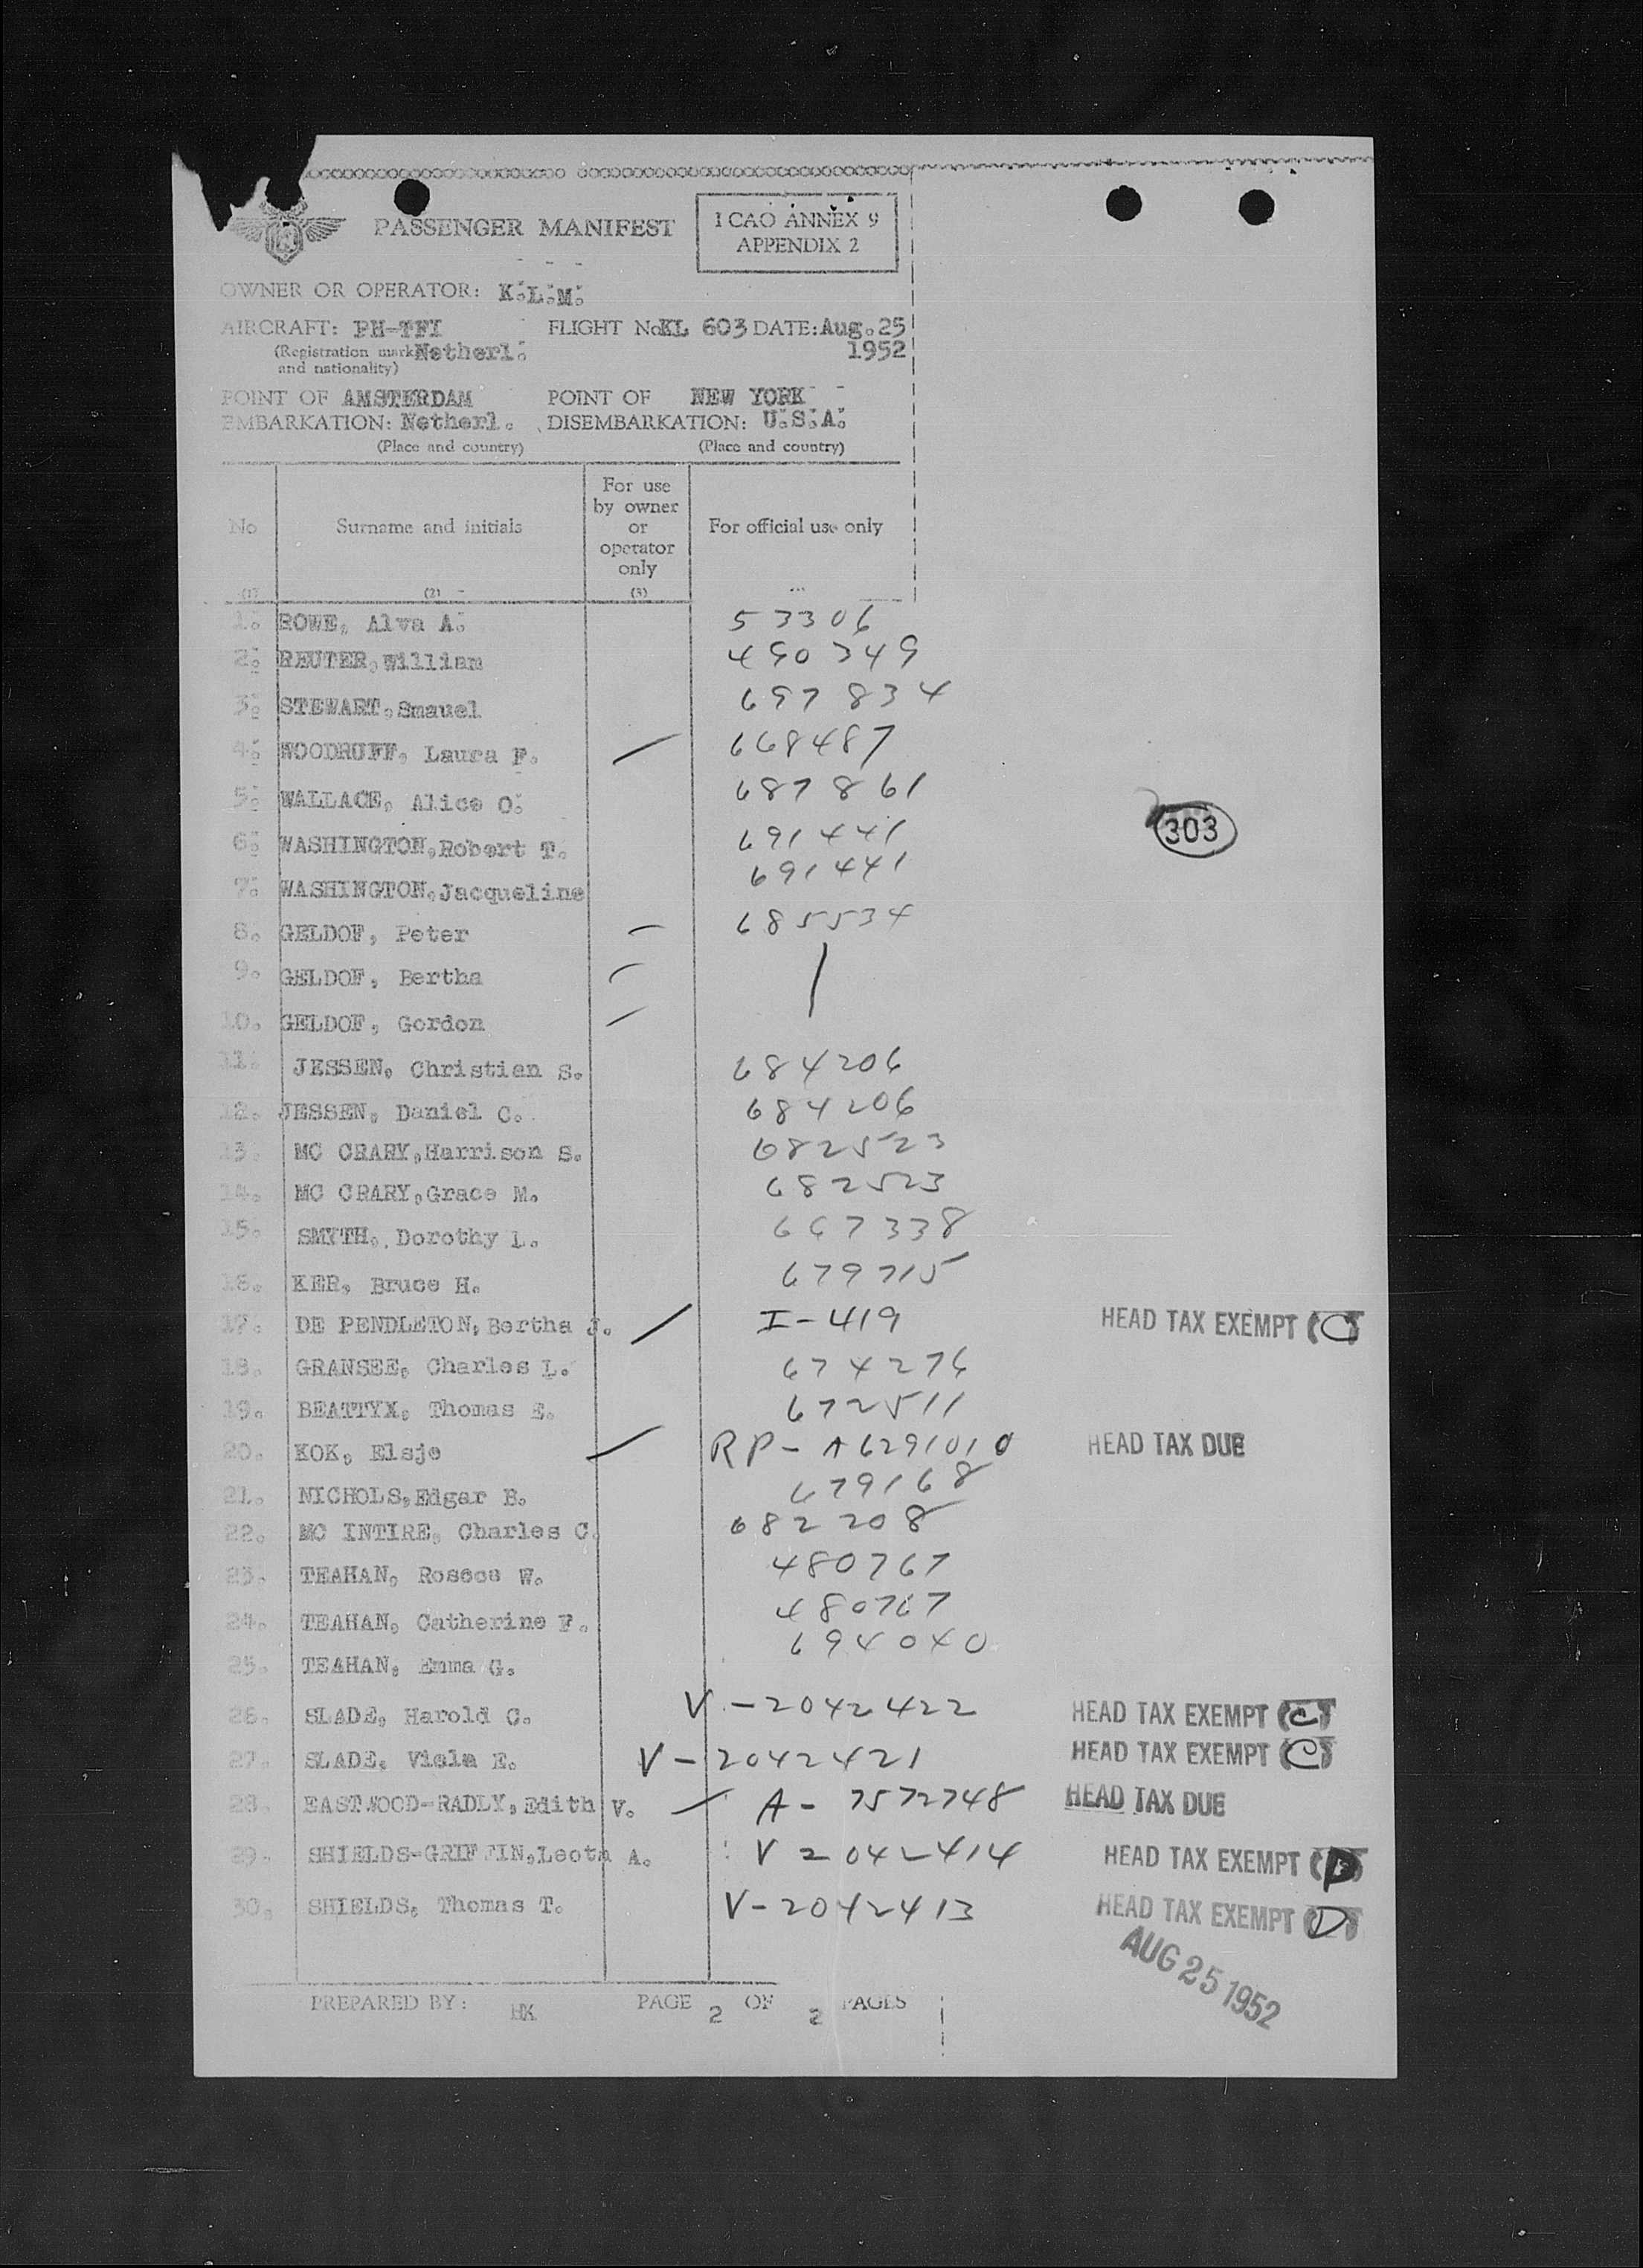 PASSENGER MANIFEST
ICAO ANNEX 9
APPENDIX 2
OWNER OR OPERATOR: K.L.M.
AIRCRAFT: PH-TFI FLIGHT No KL 603 DATE: Aug. 25
(Registration mark Netherl. 1952
and nationality)
POINT OF AMSTERDAM POINT OF NEW YORK
EMBARKATION: Netherl. DISEMBARKATION: U.S.A.
(Place and country) (Place and country)
No Surname and initials For use by owner or operator only For official use only
(1) (2) (3)
1. ROWE, Alva A. 53306
2. REUTER, William 490349
3. STEWART, Smauel 697834
4. WOODRUFF, Laura F. 668487
5. WALLACE, Alice O. 687861
303
6. WASHINGTON, Robert T. 691441
7. WASHINGTON, Jacqueline 691441
8. GELDOF, Peter 685534
9. GELDOF, Bertha
10. GELDOF, Gordon
11. JESSEN, Christian S. 684206
12. JESSEN, Daniel C. 684206
13. MC CRARY, Harrison S. 682523
14. MC CRARY, Grace M. 682523
15. SMYTH, Dorothy L. 667338
16. KER, Bruce H. 679715
17. DE PENDLETON, Bertha J. I-419 HEAD TAX EXEMPT (C)
18. GRANSEE, Charles L. 674276
19. BEATTYX, Thomas E. 672511
20. KOK, Elsje RP-A6291010 HEAD TAX DUE
21. NICHOLS, Edgar B. 679168
22. MC INTIRE, Charles C. 682208
23. TEAHAN, Roscoe W. 480767
24. TEAHAN, Catherine F. 480767
25. TEAHAN, Emma G. 694040
26. SLADE, Harold C. V-2042422 HEAD TAX EXEMPT (C)
27. SLADE, Viola E. V-2042421 HEAD TAX EXEMPT (C)
28. EASTWOOD-RADLY, Edith V. A-7572748 HEAD TAX DUE
29. SHIELDS-GRIFFIN, Leota A. V 2042414 HEAD TAX EXEMPT (D)
30. SHIELDS, Thomas T. V-2042413 HEAD TAX EXEMPT (D)
AUG 25 1952
PREPARED BY: HK PAGE 2 OF 2 PAGES